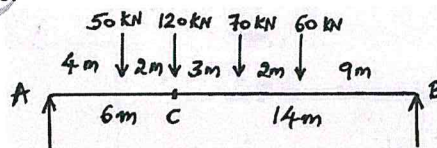 50 kN 120 kN 70 kN 60 kN
4 m 2m 3m 2m 9m
A
6m C 14m